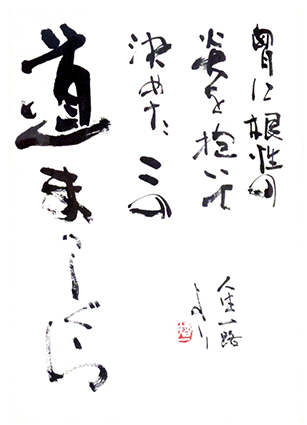 胸に根性の
炎を抱いて
決めた この
道 まっしぐら
人生一路
より